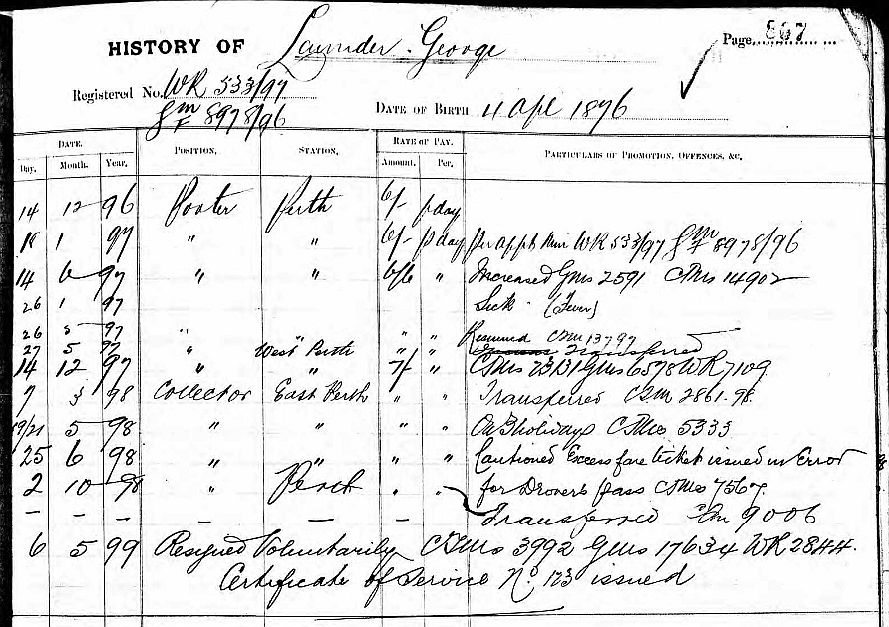 HISTORY OF Launder George
Page 867
Registered No. WR 533/97
8978/96
DATE OF BIRTH 4 Apl 1876
DATE. POSITION, STATION, RATE OF PAY. PARTICULARS OF PROMOTION, OFFENCES, &C,
Day. Month. Year. Amount. Per.
14 12 96 Porter Perth 6/- p day
18 1 97 " " 6/- p day Per appt Min WR 533/97 8978/96
14 6 97 " " 6/6 " Increased GMs 2591 CTMs 14902
26 1 97 Sick (Fever)
26 5 97 " " " Resumed CTM 13797
27 5 97 " West Perth " " Transferred
14 12 97 " " 7/- " CTMs 23131 GMs 6578 WR 7109
7 3 98 Collector East Perth " " Transferred CTM 2861.98
19/21 5 98 " " " " On 3 holidays CTMs 5333
25 6 98 " " " " Cautioned Excess fare ticket issued in Error
2 10 98 " Perth " " for Drovers pass CTMs 7567.
– – – – – – Transferred CTM 9006
6 5 99 Resigned Voluntarily CTMs 3992 GMs 17634 WR 2844.
Certificate of Service No. 123 issued